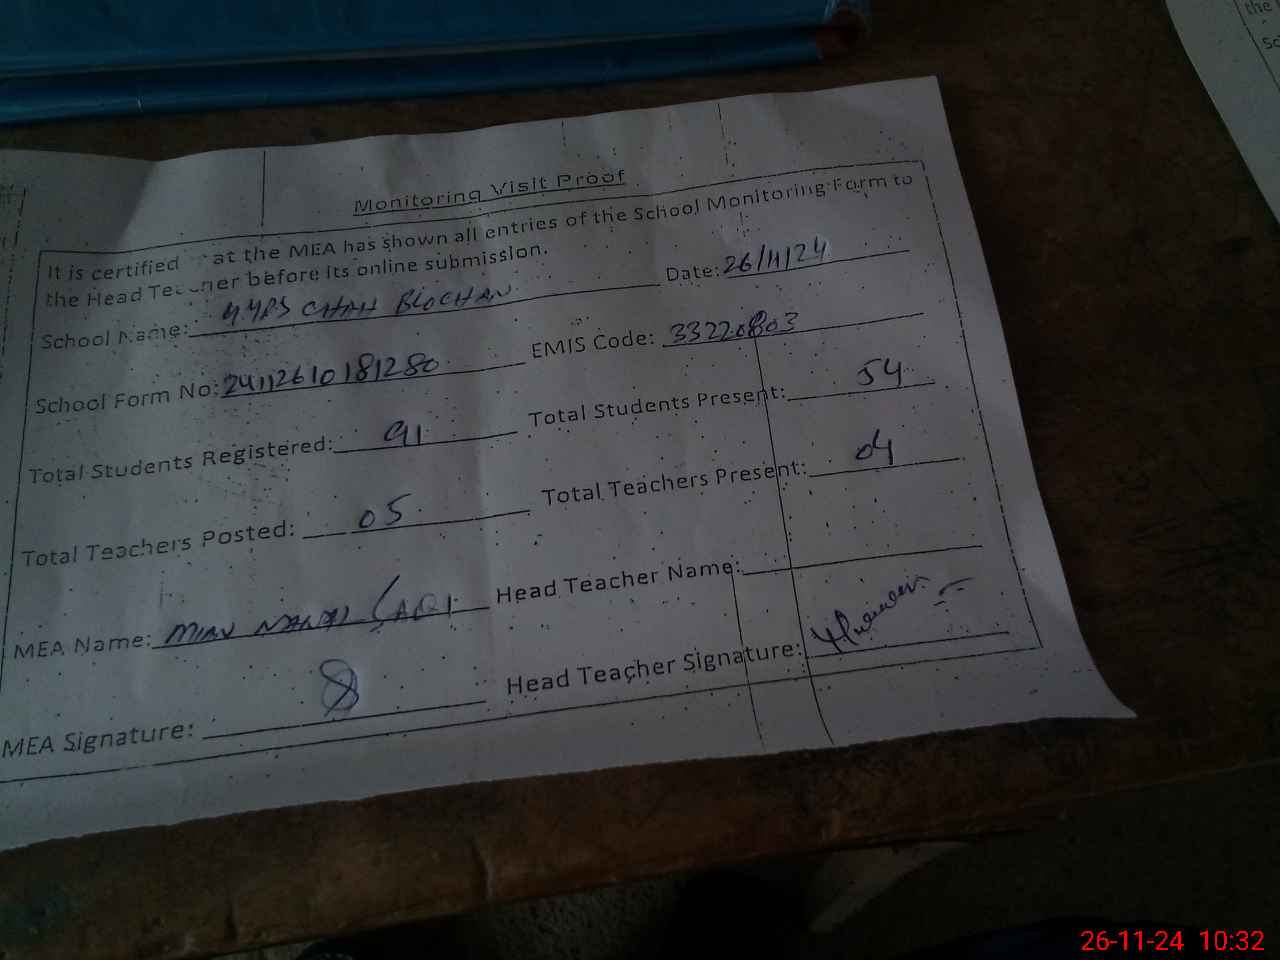 Monitoring Visit Proof
It is certified at the MEA has shown all entries of the School Monitoring Form to
the Head Teacher before its online submission.
School Name: CHAH BLOCHAN Date: 26/11/24
School Form No: 24112610181280 EMIS Code: 33220803
Total Students Registered: 91 Total Students Present: 54
Total Teachers Posted: 05 Total Teachers Present: 04
MEA Name: MIAN Head Teacher Name:
MEA Signature: Head Teacher Signature:
the
Sc
26-11-24 10:32